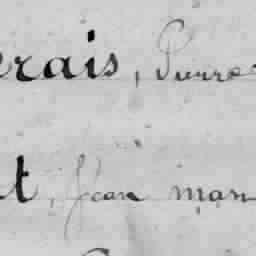 erais, Pierre
t, Jean mar